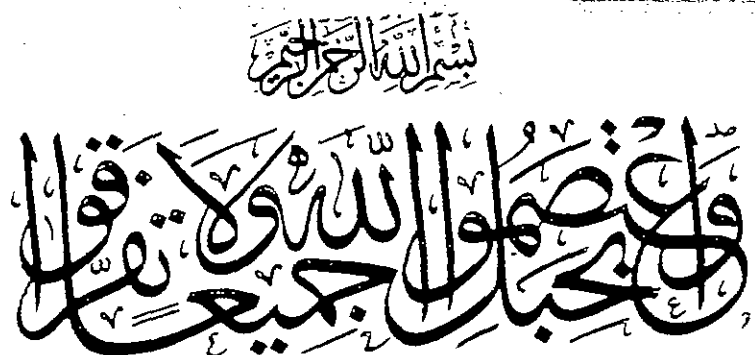 بسم الله الرحمن الرحيم
واعتصموا بحبل الله جميعا ولا تفرقوا